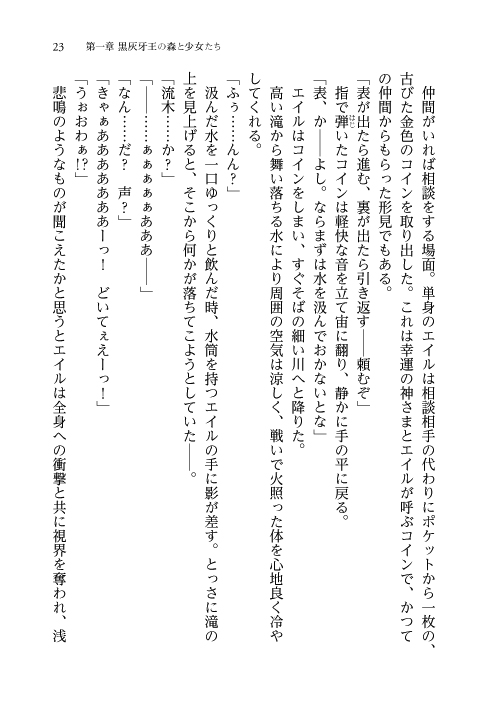 23　第一章 黒灰牙王の森と少女たち
　仲間がいれば相談をする場面。単身のエイルは相談相手の代わりにポケットから一枚の、
古びた金色のコインを取り出した。これは幸運の神さまとエイルが呼ぶコインで、かつて
の仲間からもらった形見でもある。
「表が出たら進む、裏が出たら引き返す――頼むぞ」
　指で弾いたコインは軽快な音を立て宙に翻り、静かに手の平に戻る。
「表、か――よし。ならまずは水を汲んでおかないとな」
　エイルはコインをしまい、すぐそばの細い川へと降りた。
　高い滝から舞い落ちる水により周囲の空気は涼しく、戦いで火照った体を心地良く冷や
してくれる。
「ふぅ……んん？」
　汲んだ水を一口ゆっくりと飲んだ時、水筒を持つエイルの手に影が差す。とっさに滝の
上を見上げると、そこから何かが落ちてこようとしていた――。
「流木……か？」
「――……ぁぁぁぁぁあああ――」
「なん……だ？　声？」
「きゃぁあああああああーっ！　どいてぇえーっ！」
「うぉおわぁ!?」
　悲鳴のようなものが聞こえたかと思うとエイルは全身への衝撃と共に視界を奪われ、浅